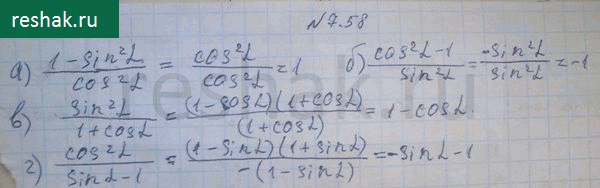 reshak.ru
№7.58
а) (1-sin²L)/(cos²L) = (cos²L)/(cos²L) = 1 б) (cos²L-1)/(sin²L) = (-sin²L)/(sin²L) = -1
в) (sin²L)/(1+cosL) = ((1-cosL)(1+cosL))/((1+cosL)) = 1-cosL.
г) (cos²L)/(sinL-1) = ((1-sinL)(1+sinL))/(-(1-sinL)) = -sinL-1
reshak.ru